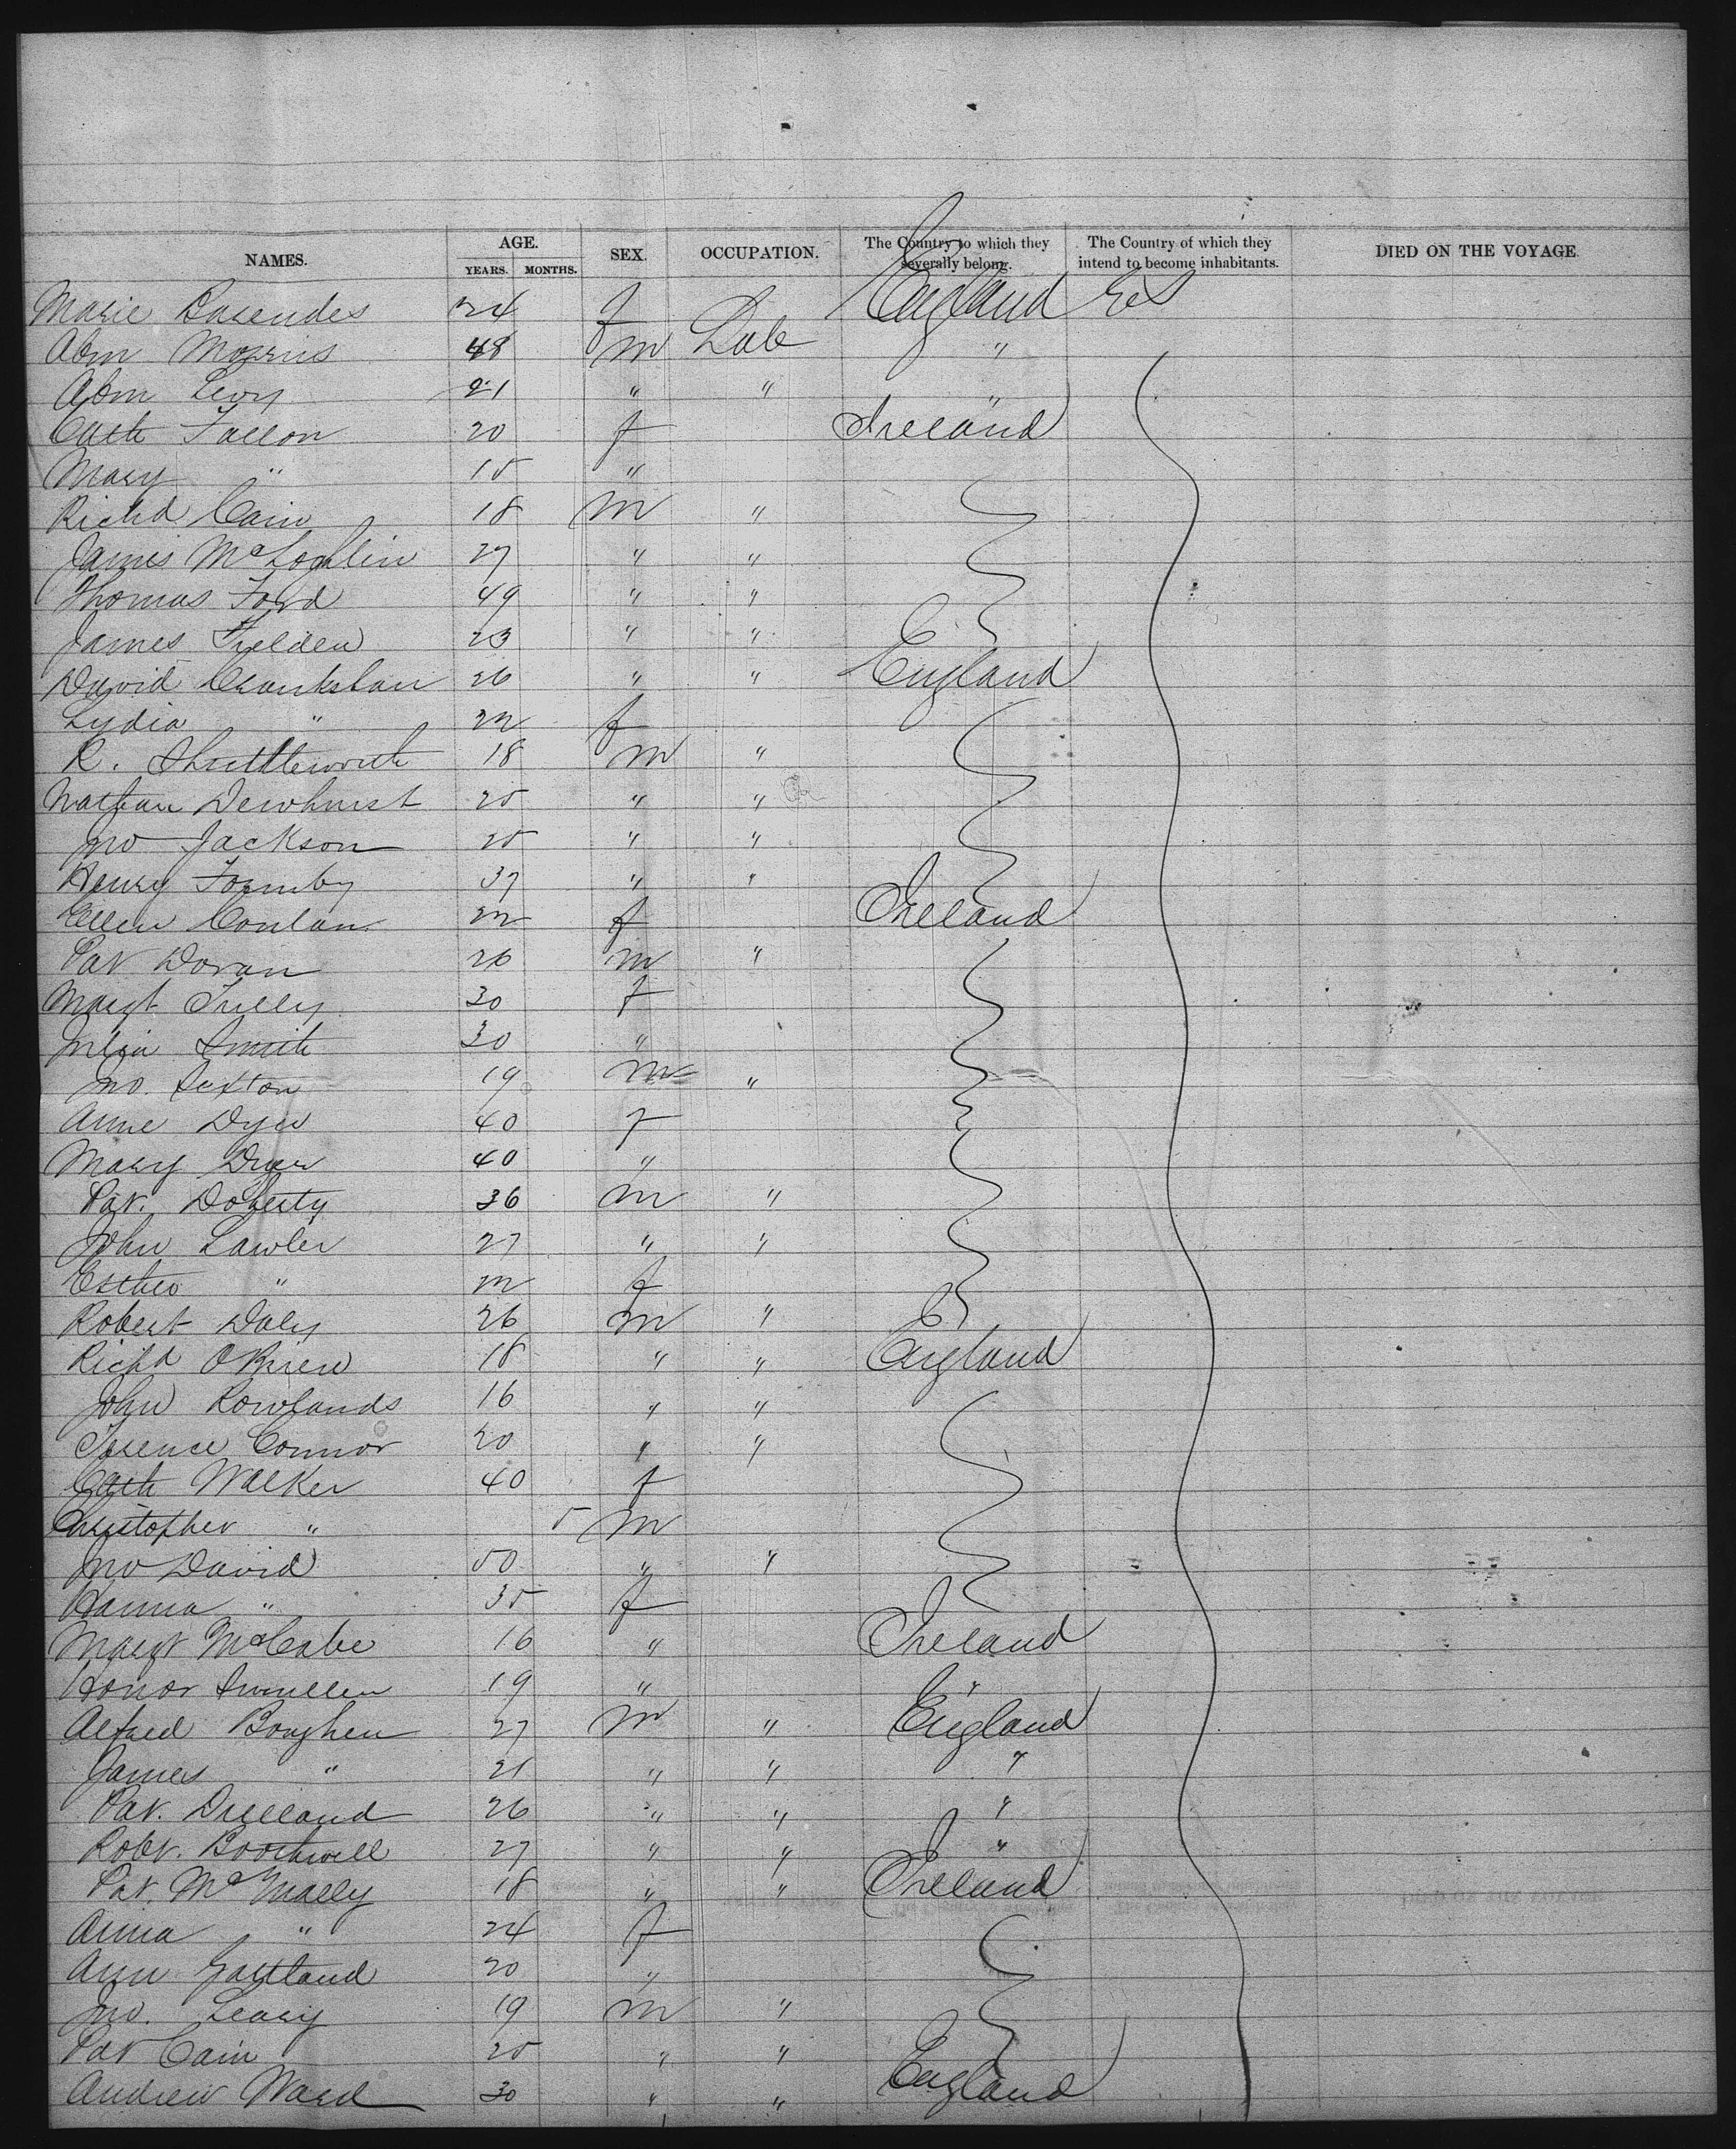 NAMES. AGE. YEARS. MONTHS. SEX. OCCUPATION. The Country to which they severally belong. The Country of which they intend to become inhabitants. DIED ON THE VOYAGE
Marie 24 f England
Abm Morris 48 m Lab "
Abm Levy 21 " " "
Cath Fallon 20 f Ireland
Mary " 15 "
Richd Cain 18 m "
James McLoghlin 27 " "
Thomas Ford 49 " "
James Fielden 23 " "
David 26 " " England
Lydia " 22 f
R. Shuttleworth 18 m "
Nathan Dewhurst 25 " "
Jno Jackson 25 " "
Henry Formby 37 " "
Ellen Conlan 22 f Ireland
Pat Doran 26 m "
Margt 30 f
Julia Smith 30 "
Jno. Sexton 19 m "
Anne Dyer 40 f
Mary Dyer 40 "
Pat. Doherty 36 m "
John Lawler 27 " "
Esther " 22 f
Robert Daly 26 m "
Richd OBrien 18 " " England
John Rowlands 16 " "
Terence Connor 20 " "
Cath Walker 40 f
Christopher " 5 m
Jno David 50 " "
Hanna " 35 f
Margt McCabe 16 " Ireland
Honor 19 " "
Alfred Boughen 27 m " England
James " 21 " " "
Pat. 26 " " "
Robt. Boothwell 27 " " "
Pat. McNally 18 " " Ireland
Anna " 24 f
Ann Gartland 20 "
Jno. Leary 19 m "
Pat Cain 25 " "
Andrew Ward 30 " " England